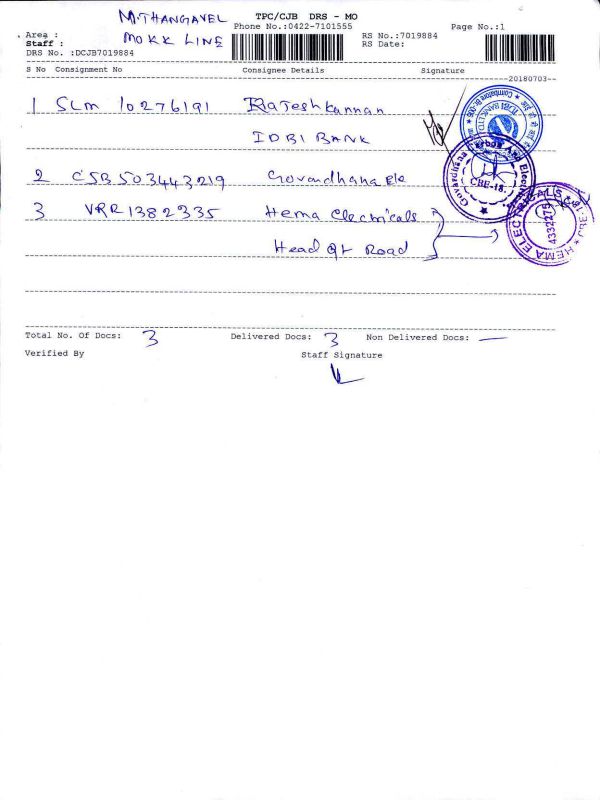 M.THANGAVEL
TPC/CJB DRS - MO
Phone No.:0422-7101555
Page No.:1
Area :
RS No.:7019884
Staff : MOKK LINE
RS Date:
DRS No. :DCJB7019884
S No Consignment No Consignee Details Signature
20180703
1 SLM 10276191 Rajeshkannan
IDBI BANK
2 CSB503443219 Govardhana Ele
3 VRR1382335 Hema Electricals
Head Qt Road
IDBI BANK LTD.
Coimbatore
CBE-18.
HEMA ELECTRICALS
4334275
Total No. Of Docs: 3 Delivered Docs: 3 Non Delivered Docs: —
Verified By Staff Signature